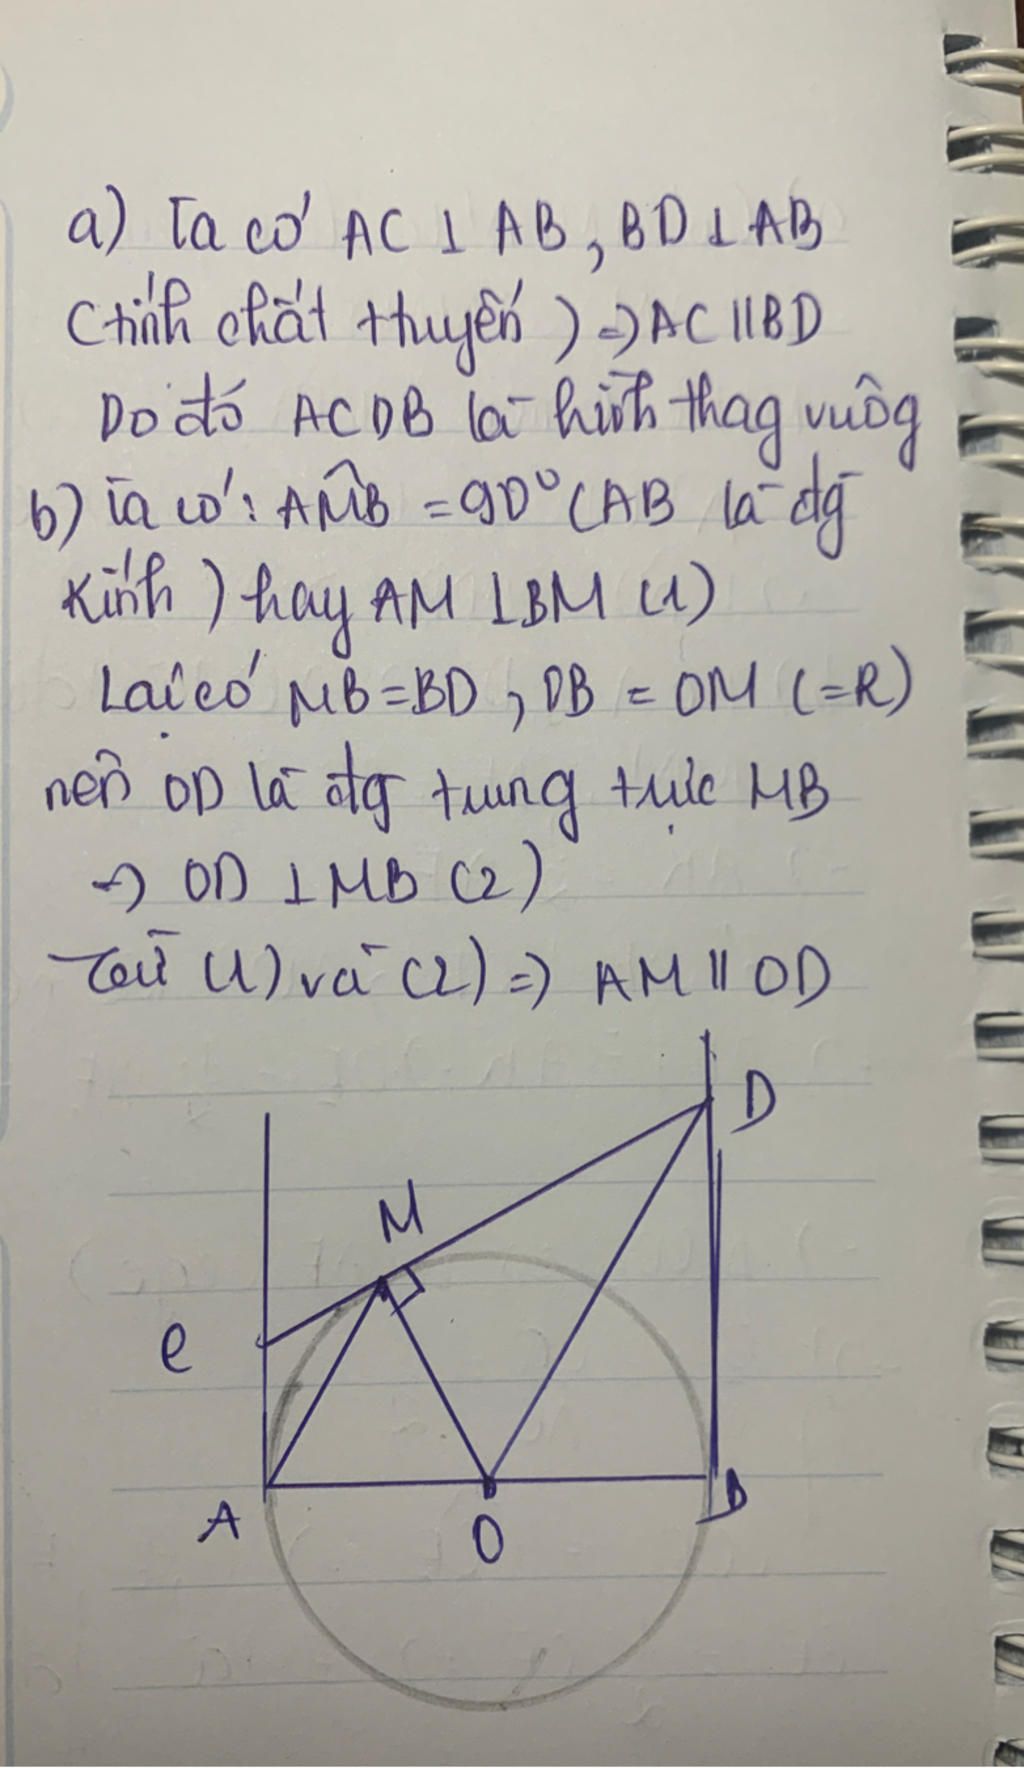 a) Ta có AC ⊥ AB, BD ⊥ AB
(tính chất ttuyến) => AC // BD
Do đó ACDB là hình thag vuôg
b) Ta có: AM̂B = 90° (AB là đg
kính) hay AM ⊥ BM (1)
Lại có MB = BD, OB = OM (=R)
nên OD là đg trung trực MB
=> OD ⊥ MB (2)
Từ (1) và (2) => AM // OD
D
M
C
A
O
B